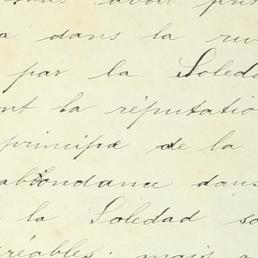 avoir
a dans la
par la Soleda
nt la réputatio
principe de la
abondance dans
la Soledad so
réables; mais a